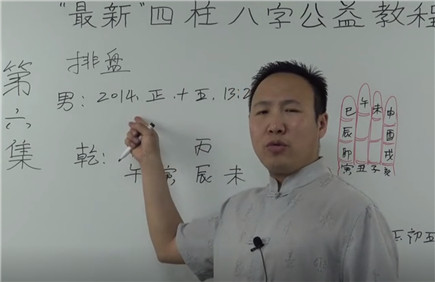 "最新"四柱八字公益教程
第六集
排盘
男：2014、正、十五、13:2
乾：丙
午寅辰未
巳午未申
辰酉
卯戌
寅丑子亥
初五